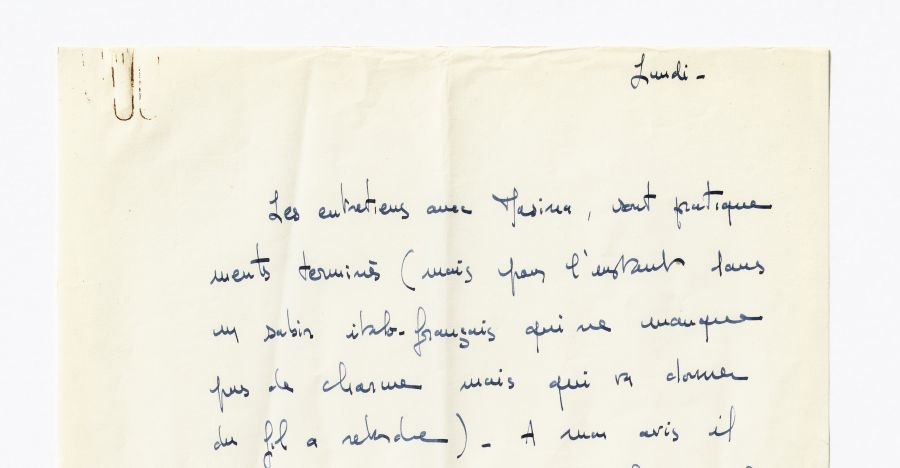 Lundi -
Les entretiens avec Masina, sont pratique
ments terminés (mais pour l'instant dans
un sabir italo-français qui ne manque
pas de charme mais qui va donner
du fil a retordre) - A mon avis il